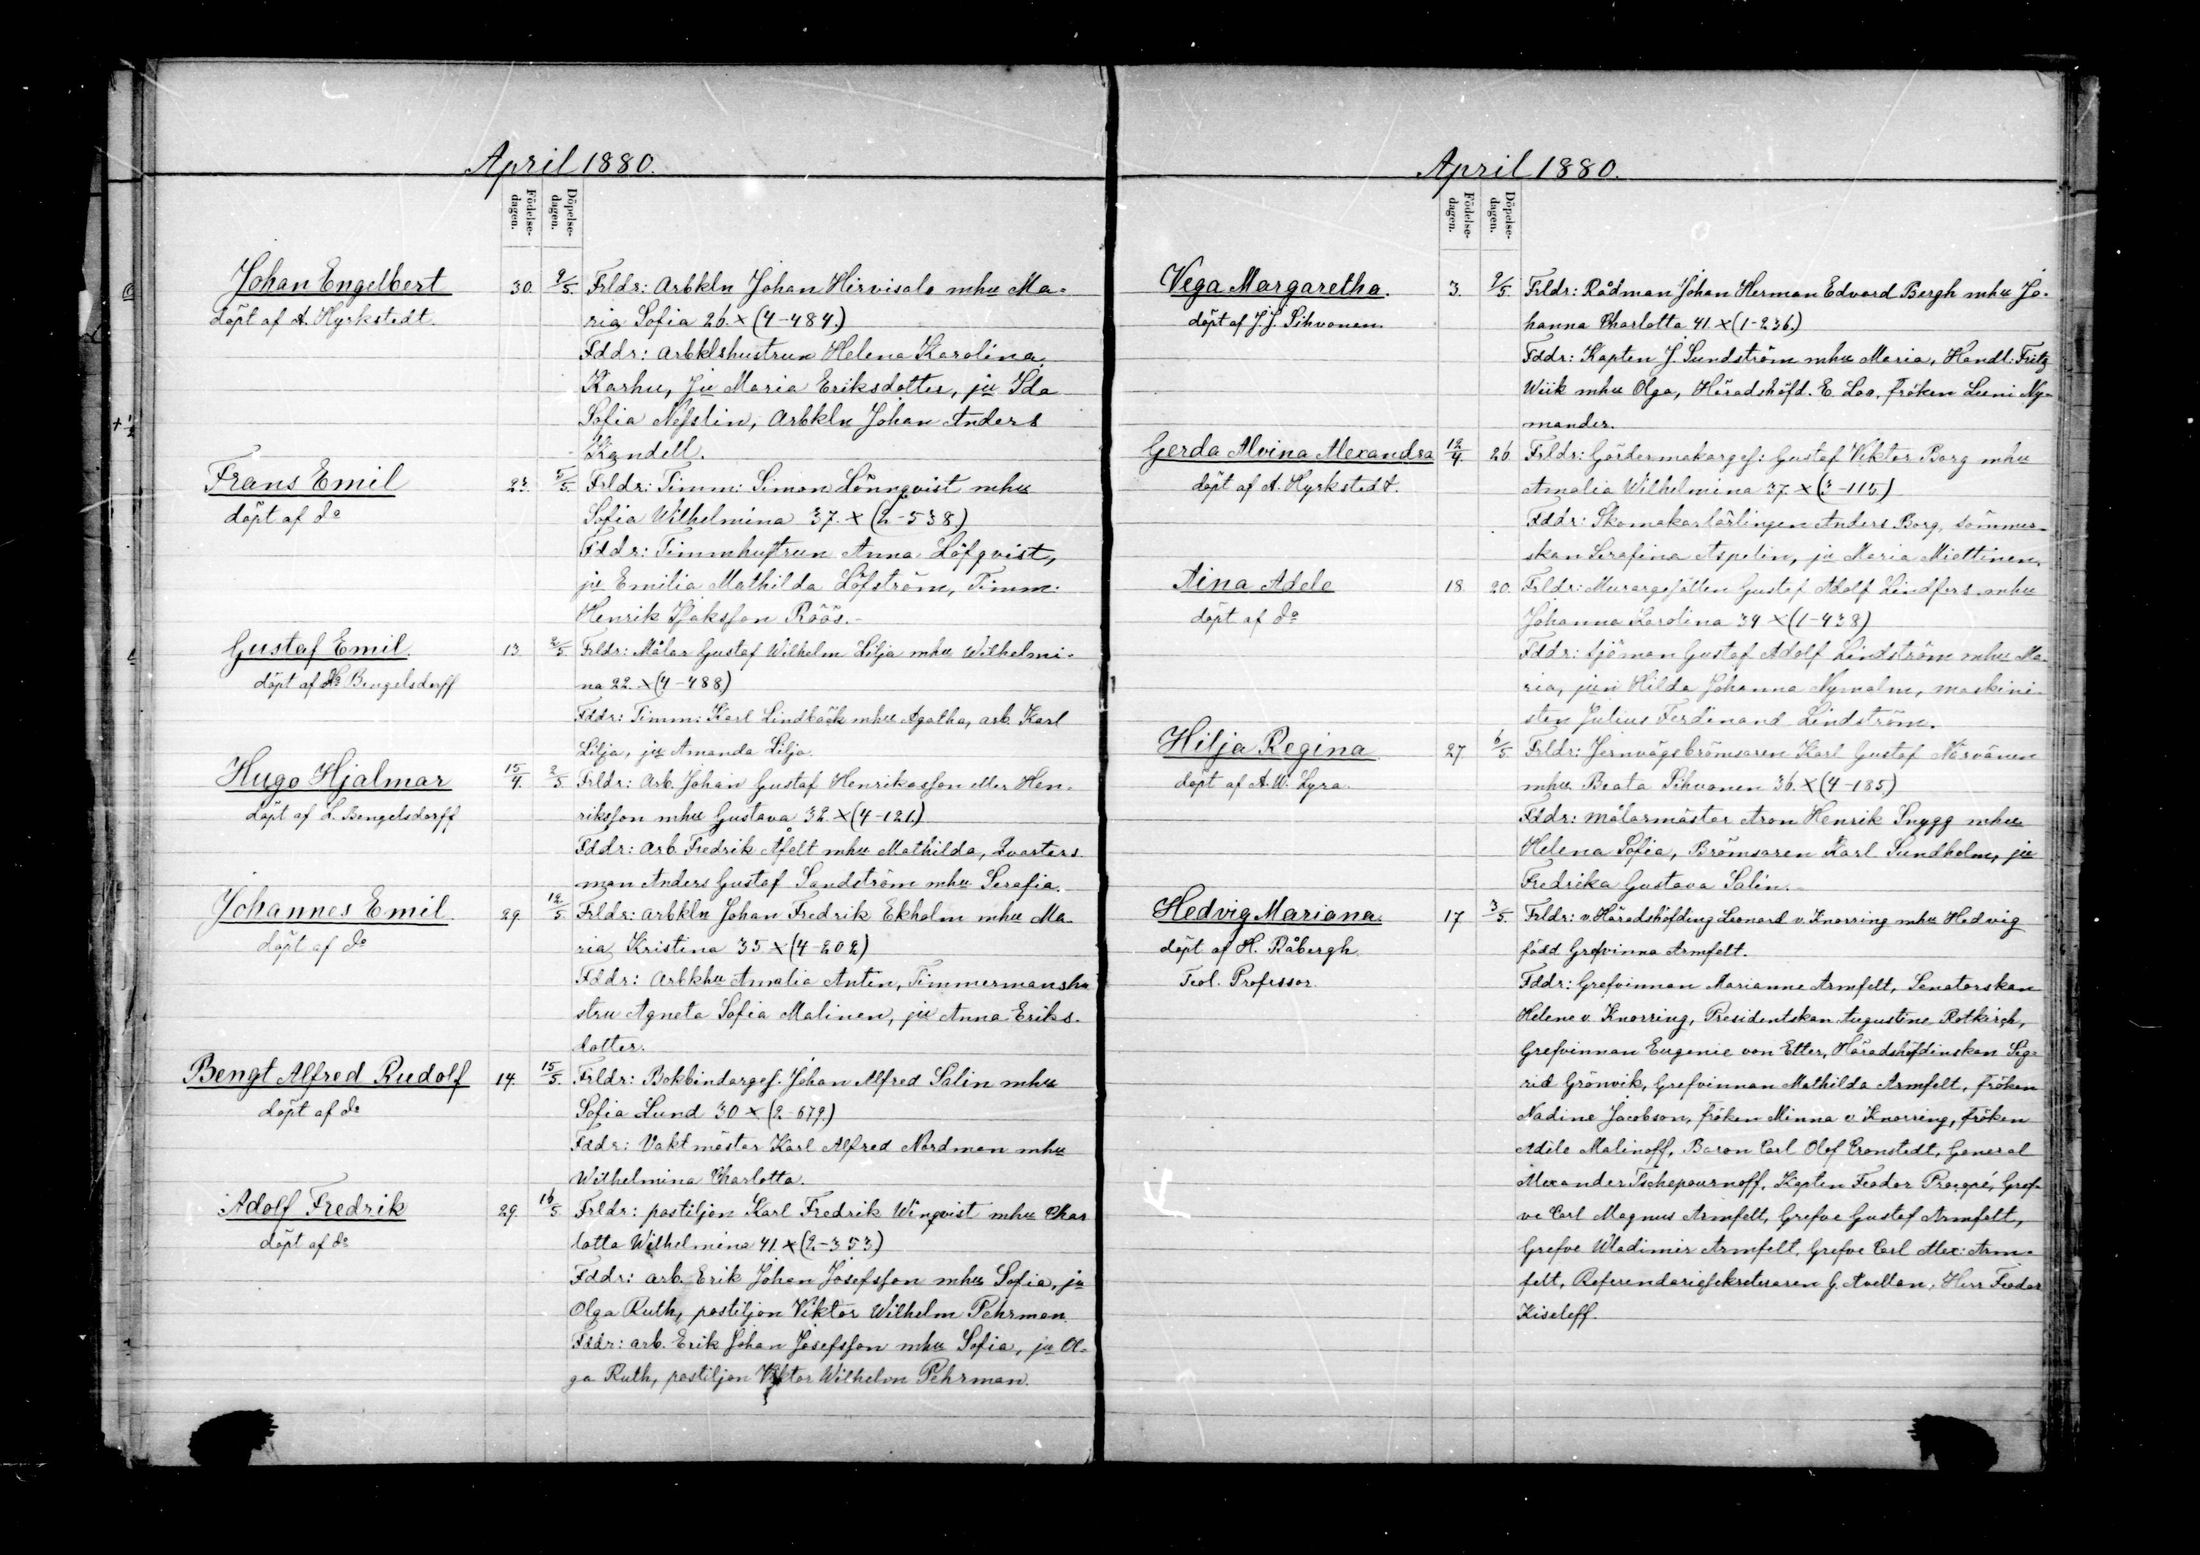 April 1880.
Födelse-
dagen.
Döpelse-
dagen.
Johan Engelbert 30. 9/5. Frldr: Arbkln Johan Hirvisalo mhu Ma-
döpt af A. Hyrkstedt. ria Sofia 26. x (4-484.)
Fddr: Arbklshustrun Helena Karolina
Karhu, ju Maria Eriksdotter, ju Ida
Sofia Neſslin, Arbkln Johan Anders
Kandell.
Frans Emil 23. 5/5. Frldr: Timm: Simon Lönnqvist mhu
döpt af do Sofia Wilhelmina 37. x (2-538)
Fddr: Timmhuſtrun Anna Löfqvist,
ju Emilia Mathilda Löfström, Timm:
Henrik Iſaksſon Röös.-
Gustaf Emil 13. 2/5. Frldr: Målar Gustaf Wilhelm Lilja mhu Wilhelmi-
döpt af Bengelsdorff na 22. x (4-488)
Fddr: Timm: Karl Lindbäck mhu Agatha, arb. Karl
Lilja, ju Amanda Lilja.
Hugo Hjalmar 15/4. 2/5. Frldr: Arb. Johan Gustaf Henrikasſon eller Hen-
döpt af L. Bengelsdorff riksſon mhu Gustava 32. x (4-121.)
Fddr: Arb. Fredrik Åfelt mhu Mathilda, Qvarters-
man Anders Gustaf Sandström mhu Serafia.
Johannes Emil 29. 12/5. Frldr: Arbkln Johan Fredrik Ekholm mhu Ma-
döpt af do ria Kristina 35 x (4-202)
Fddr: Arbkhu Amalia Antin, Timmermanshu
stru Agneta Sofia Malinen, ju Anna Eriks-
dotter.
Bengt Alfred Rudolf 14. 15/5. Frldr: Bokbindargeſ. Johan Alfred Salin mhu
döpt af do Sofia Lund 30 x (2-679.)
Fddr: Vaktmäster Karl Alfred Nordman mhu
Wilhelmina Charlotta.
Adolf Fredrik 29. 16/5 Frldr: postiljon Karl Fredrik Winqvist mhu Char
döpt af do lotta Wilhelmina 41. x (2-353)
Fddr: arb. Erik Johan Josefsſon mhu Sofia, ju
Olga Ruth, postiljon Viktor Wilhelm Pehrman.
Fddr: arb. Erik Johan Josefsſon mhu Sofia, ju Ol-
ga Ruth, postiljon Viktor Wilhelm Pehrman.
April 1880.
Födelse-
dagen.
Döpelse-
dagen.
Vega Margaretha. 3. 9/5. Frldr: Rådman Johan Herman Edvard Bergh mhu Jo-
döpt af J.J. Sihvonen. hanna Charlotta 41. x (1-236.)
Fddr: Kapten J. Sundström mhu Maria, Handl: Fritz
Wiik mhu Olga, Häradshöfd. E. Loo, fröken Lini Ny-
mander.
Gerda Alvina Alexandra 12/4. 26 Frldr: Gördermakargeſ: Gustaf Viktor Borg mhu
döpt af A. Hyrkstedt. Amalia Wilhelmina 37. x (3-115)
Fddr: Skomakarlärlingen Anders Borg, sömmer-
skan Serafina Aspelin, ju Maria Miettinen.
Aina Adele 18. 20. Frldr: Murargeſällen Gustaf Adolf Lindfors mhu
döpt af do Johanna Karolina 34 x (1-438)
Fddr: Sjöman Gustaf Adolf Lindström mhu Ma-
ria, jun Hilda Johanna Nymalm, maskini-
sten Julius Ferdinand Lindström.
Hilja Regina 27 6/5. Frldr: Jernvägsbromsaren Karl Gustaf Närvänen
döpt af A.W. Lyra. mhu Beata Sihvonen 36. x (4-185)
Fddr: målarmäster Aron Henrik Snygg mhu
Helena Sofia, Bromsaren Karl Sundholm, ju
Fredrika Gustava Salin.-
Hedvig Mariana. 17 3/5. Frldr: v. Häradshöfding Leonard v. Knorring mhu Hedvig
döpt af H. Råbergh född Grefvinna Armfelt.
Teol. Professor. Fddr: Grefvinnan Marianne Armfelt, Senatorskan
Helene v. Knorring, Presidentskan Augustine Rotkirch,
Grefvinnan Eugenie von Etter, Häradshöfdinskan Sig-
rid Grönvik, Grefvinnan Mathilda Armfelt, fröken
Nadine Jacobson, fröken Minna v. Knorring, fröken
Adèle Malinoff, Baron Carl Olof Cronstedt, General
Alexander Tschepournoff, Kapten Feodor Procopé, Gref-
ve Carl Magnus Armfelt, Grefve Gustaf Armfelt,
Grefve Wladimir Armfelt, Grefve Carl Alex: Arm-
felt, Referendarieſekreteraren G. Avellan, Herr Feodor
Kiseleff.